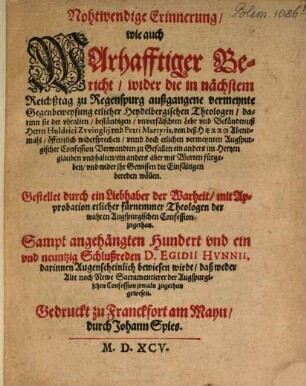 Polem. 1086.
Nohtwendige Erinnerung/
wie auch
WArhafftiger Be-
richt / wider die in nächstem
Reichßtag zu Regenspurg außgangene vermeynte
Gegenbeweisung etlicher Heydelbergischen Theologen / da-
rinn sie der vhralten / beständigen / vnverfälschten Lehr vnd Bekändnuß
Herrn Huldrici Zvinglij vnd Petri Martyris, von deß HERRN Abend-
mahl / öffentlich widersprechen / vnnd doch etlichen vermeynten Augspur-
gischer Confession Verwandten zu Gefallen ein anders im Hertzen
glauben vnd halten / ein anders aber mit Worten fürge-
ben / vnd wider ihr Gewissen die Einfältigen
bereden wöllen.
Gestellet durch ein Liebhaber der Warheit / mit Ap-
probation etlicher fürnemmer Theologen der
wahren Augspurgischen Confession
zugethan.
Sampt angehängten Hundert vnd ein
vnd neuntzig Schlußreden D. EGIDII HVNNII,
darinnen Augenscheinlich bewiesen wirdt / daß weder
Alte noch Newe Sacramentierer der Augspurgi-
schen Confession jemaln zugethan
gewesen.
Gedruckt zu Franckfort am Mayn /
durch Johann Spies.
M. D. XCV.